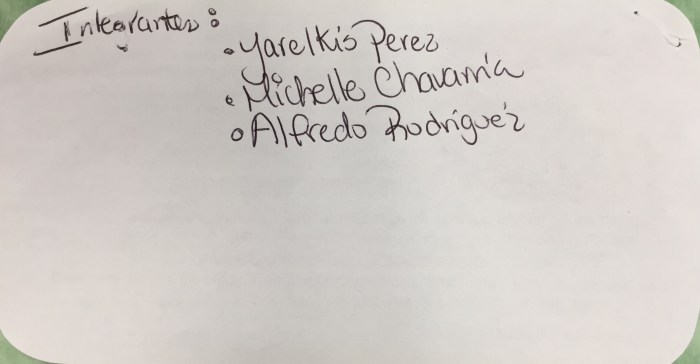 Integrantes:
• Yarelkis Perez
• Michelle Chavarría
• Alfredo Rodríguez